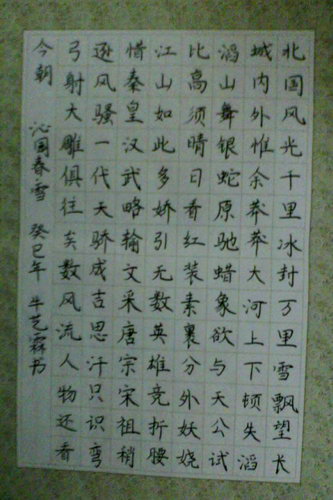 北国风光千里冰封万里雪飘望长
城内外惟余莽莽大河上下顿失滔
滔山舞银蛇原驰蜡象欲与天公试
比高须晴日看红装素裹分外妖娆
江山如此多娇引无数英雄竞折腰
惜秦皇汉武略输文采唐宗宋祖稍
逊风骚一代天骄成吉思汗只识弯
弓射大雕俱往矣数风流人物还看
今朝 沁园春雪 癸巳年 牛芝霖书